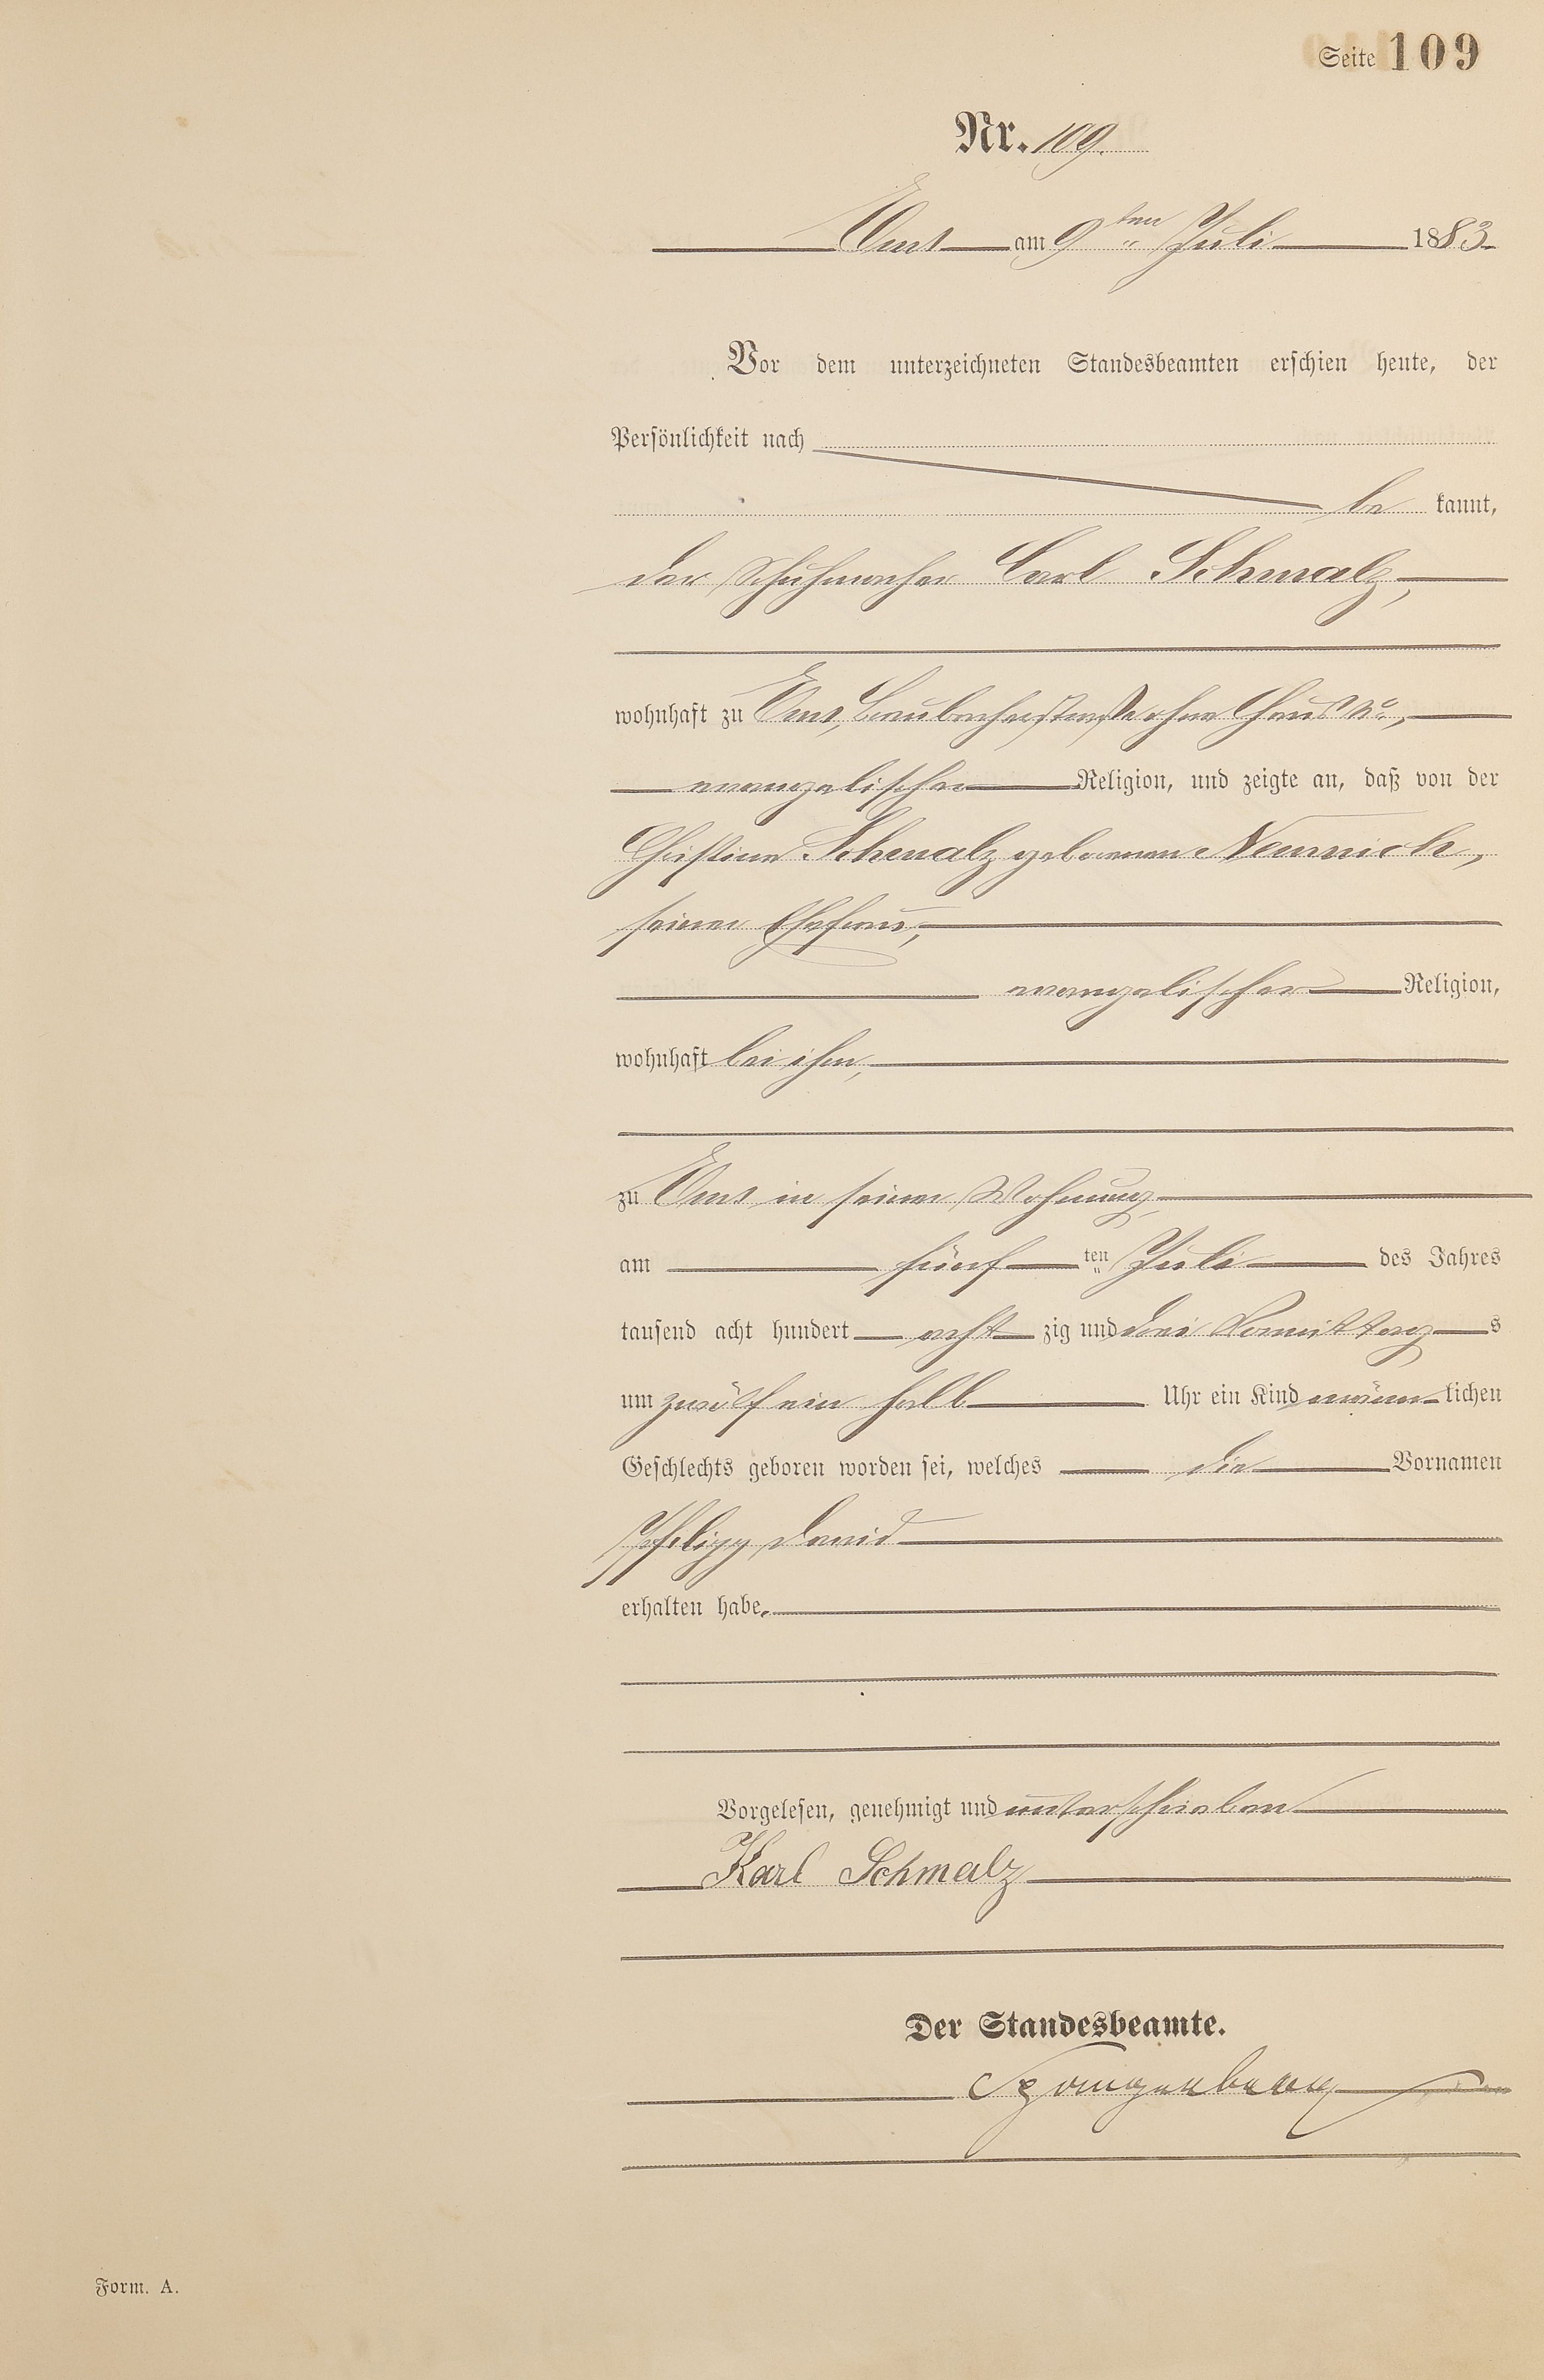 Seite 109
Nr. 109.
Ems am 9ten Juli 1883
Vor dem unterzeichneten Standesbeamten erschien heute, der
Persönlichkeit nach
be kannt,
der Schuhmacher Carl Schmalz,
wohnhaft zu Ems, Braubacherstraße ohne Haus No.,
evangelischer Religion, und zeigte an, daß von der
Christine Schmalz geborenen Nemnich,
seiner Ehefrau,
evangelischer Religion,
wohnhaft bei ihm,
zu Ems in seiner Wohnung,
am fünf ten Juli des Jahres
tausend acht hundert acht zig und drei Vormittag s
um zwölf ein halb Uhr ein Kind männ lichen
Geschlechts geboren worden sei, welches die Vornamen
Philipp David
erhalten habe.
Vorgelesen, genehmigt und unterschrieben
Karl Schmalz
Der Standesbeamte.
Form. A.